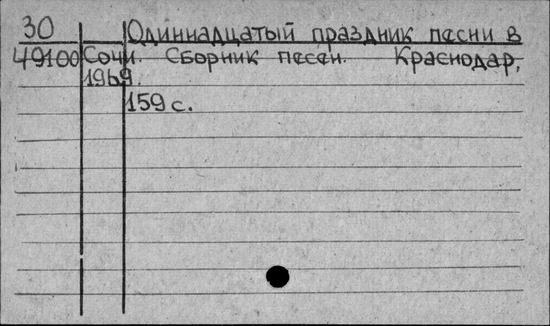 30 Одиннадцатый праздник песни в
49100 Сочи. Сборник песен. Краснодар,
1969.
159 с.